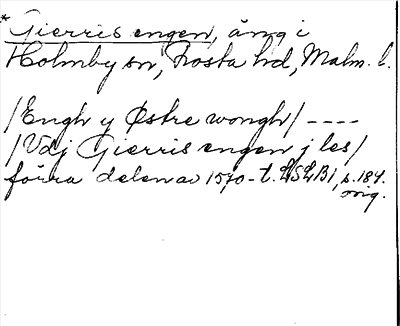 * Gierris engen, äng i
Holmby sn, Frosta hd, Malm. l.
/Engh y Østre wongh/ ----
/Vdj Gierris engen j les/
förra delen av 1570-t. LSLB1, s. 184.
orig.